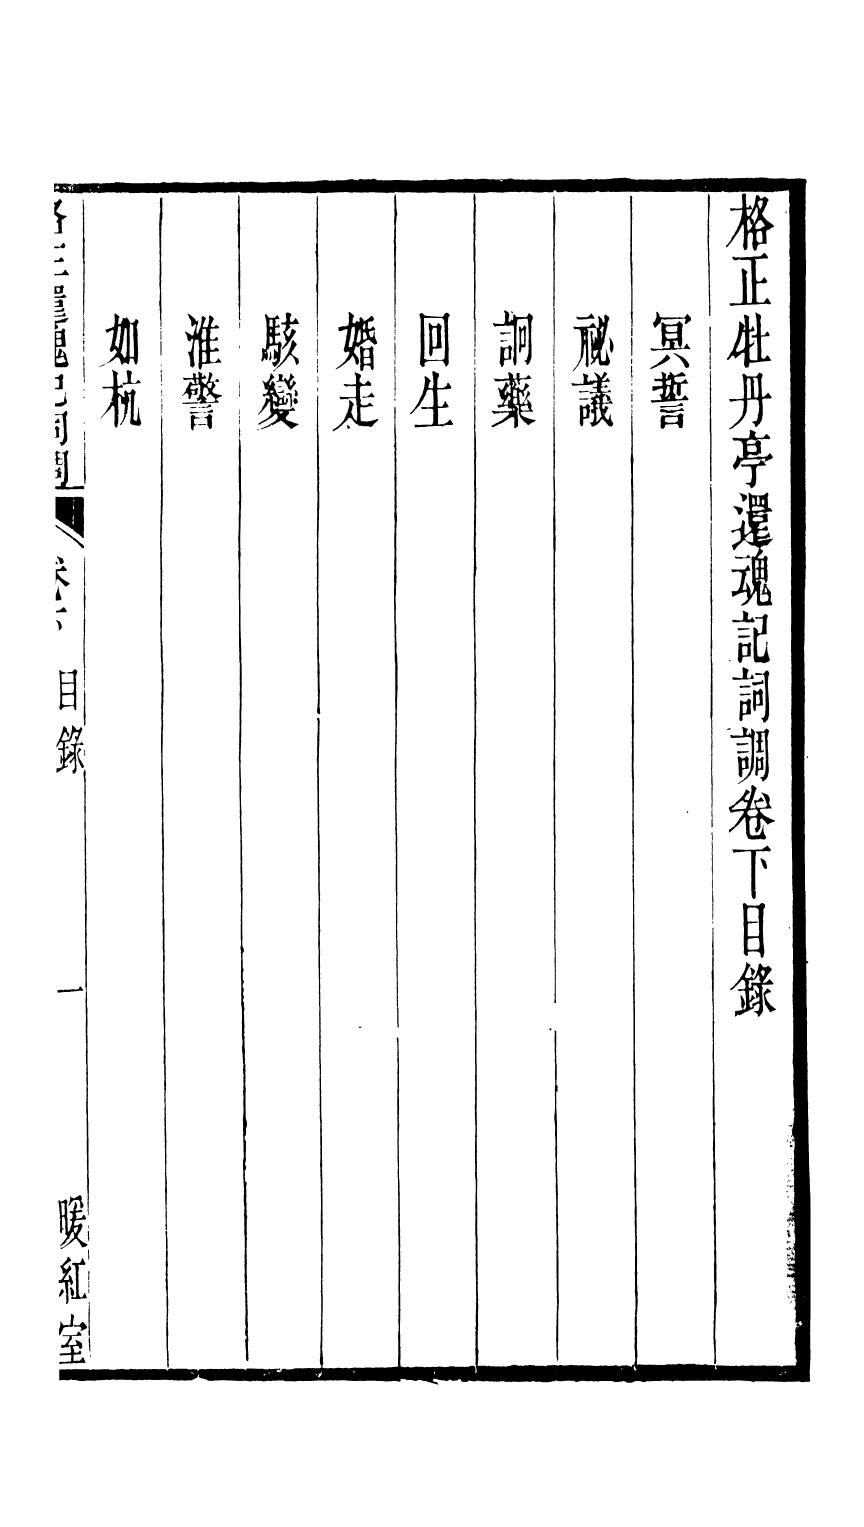 格正牡丹亭還魂記詞調卷下目錄
冥誓
祕議
詗藥
回生
婚走
駭變
淮警
如杭
格正還魂記詞調 卷下 目錄 一 暖紅室